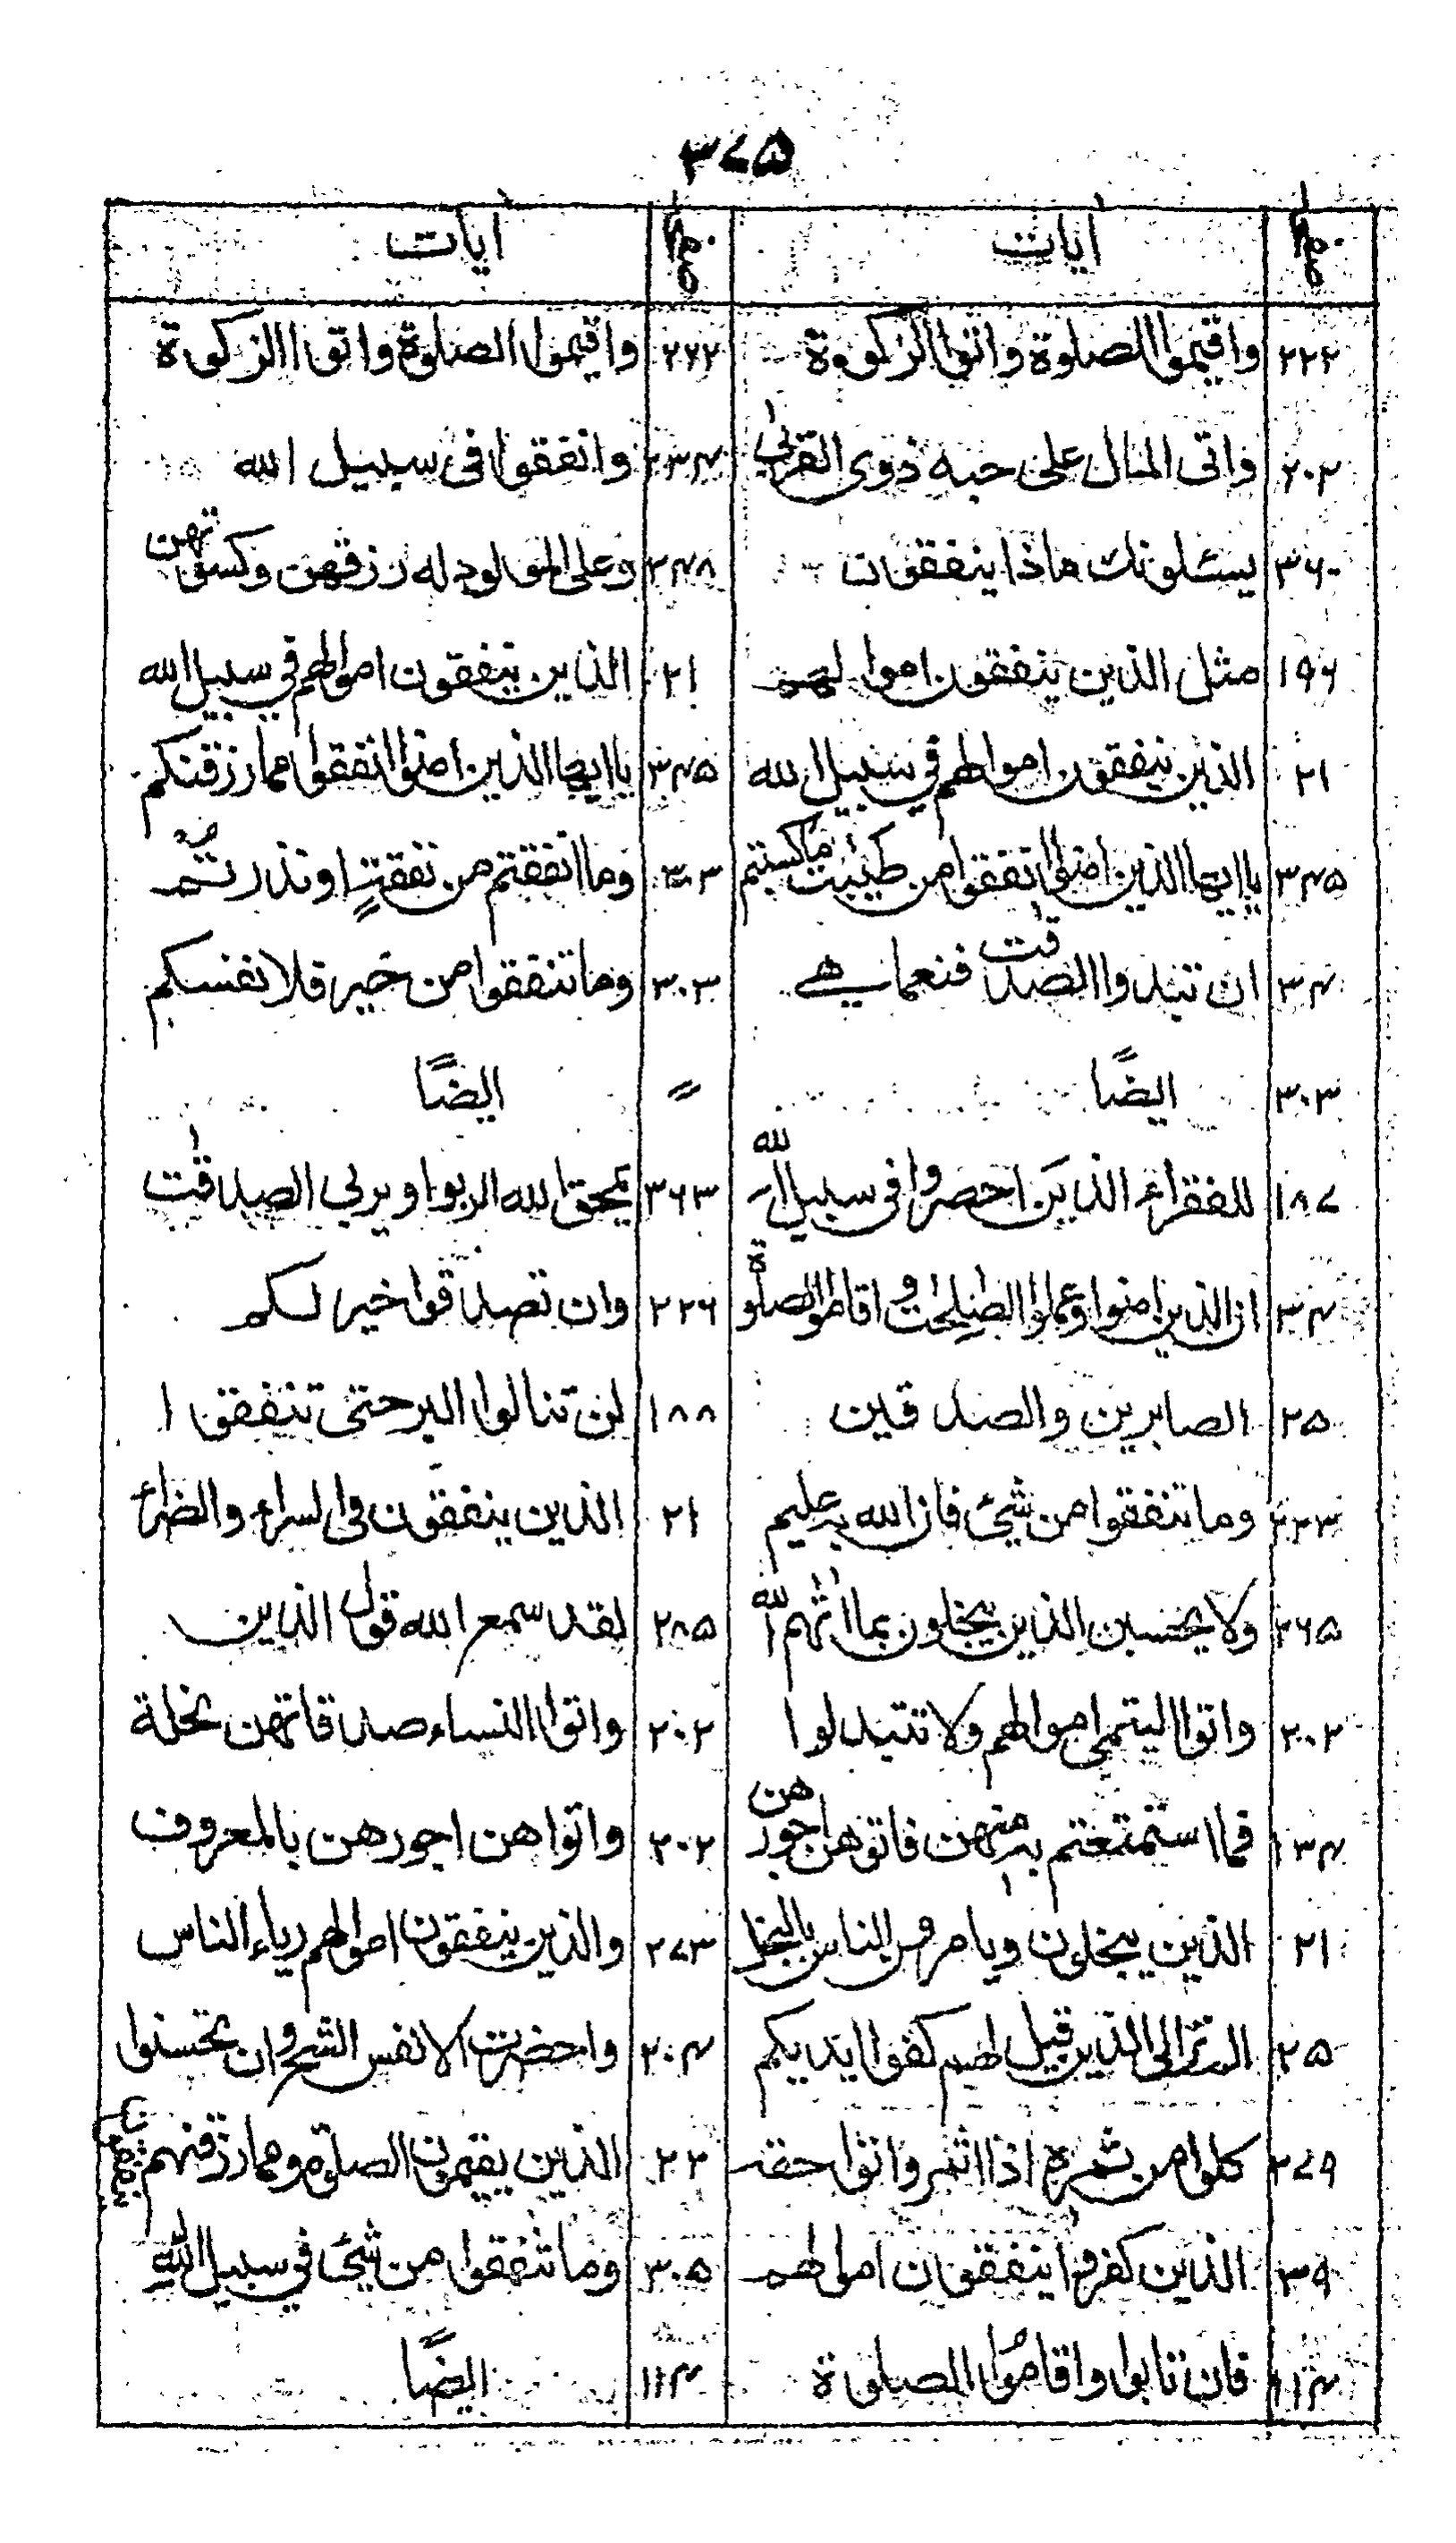 ۳۷۵
صفحہ | ایات | صفحہ | ایات
۲۲۲ | واقیموا الصلوة واتوا الزکوة | ۲۷۲ | واقیموا الصلوة واتوا الزکوة
۲۰۲ | واتی المال علی حبه ذوی القربی | ۲۳۴ | وانفقوا فی سبیل الله
۳۶۰ | یسئلونک ماذا ینفقون | ۲۴۸ | وعلی المولود له رزقهن وکسوتهن
۱۹۶ | مثل الذین ینفقون اموالهم | ۲۱ | الذین ینفقون اموالهم فی سبیل الله
۲۱ | الذین ینفقون اموالهم فی سبیل الله | ۳۴۵ | یا ایها الذین امنوا انفقوا مما رزقنکم
۳۴۵ | یا ایها الذین امنوا انفقوا من طیبت ما کسبتم | ۳۰۳ | وما انفقتم من نفقةٍ او نذرتم
۳۴ | ان تبدوا الصدقٰت فنعما هی | ۳۰۳ | وما تنفقوا من خیر فلانفسکم
۳۰۳ | ایضًا | 〃 | ایضًا
۱۸۷ | للفقراء الذین احصروا فی سبیل الله | ۳۶۳ | یمحق الله الربوا ویربی الصدقٰت
۳۴ | ان الذین امنوا وعملوا الصٰلحٰت واقاموا الصلوة | ۲۲۶ | وان تصدقوا خیر لکم
۲۵ | الصابرین والصدقین | ۱۸۸ | لن تنالوا البر حتی تنفقوا
۲۲۳ | وما تنفقوا من شئ فان الله به علیم | ۲۱ | الذین ینفقون فی السراء والضراء
۲۶۵ | ولا یحسبن الذین یبخلون بما اٰتٰهم الله | ۲۸۵ | لقد سمع الله قول الذین
۲۰۲ | واتوا الیتمی اموالهم ولا تتبدلوا | ۲۰۲ | واتوا النساء صدقاتهن نحلة
۱۳۴ | فما استمتعتم به منهن فاتوهن اجورهن | ۲۰۲ | واتوا هن اجورهن بالمعروف
۲۱ | الذین یبخلون ویامرون الناس بالبخل | ۲۷۳ | والذین ینفقون اموالهم ریاء الناس
۲۵ | الم تر الی الذین قیل لهم کفوا ایدیکم | ۲۰۴ | واحضرت الانفس الشح وان تحسنوا
۲۷۹ | کلوا من ثمره اذا اثمر واتوا حقه | ۲۲ | الذین یقیمون الصلوة ومما رزقنهم ینفقون
۳۹ | الذین کفروا ینفقون اموالهم | ۳۰۵ | وما تنفقوا من شئ فی سبیل الله
۱۱۴ | فان تابوا واقاموا الصلوة | ۱۱۴ | ایضًا